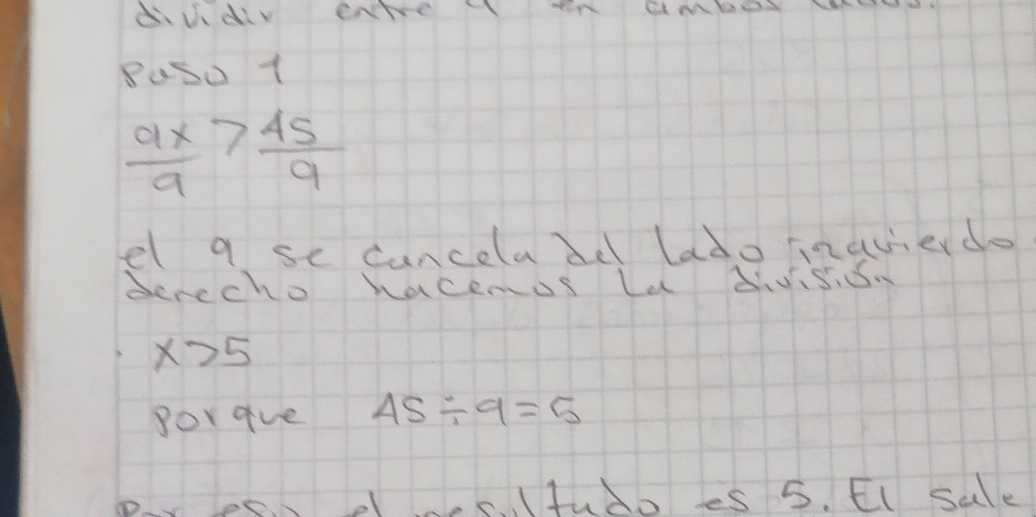 dividir entre 9 en ambos lados.
Paso 1
9x/9 > 45/9
el 9 se cancela del lado izquierdo
derecho hacemos la división
x>5
Porque 45÷9=5
Por eso el resultado es 5. El sale